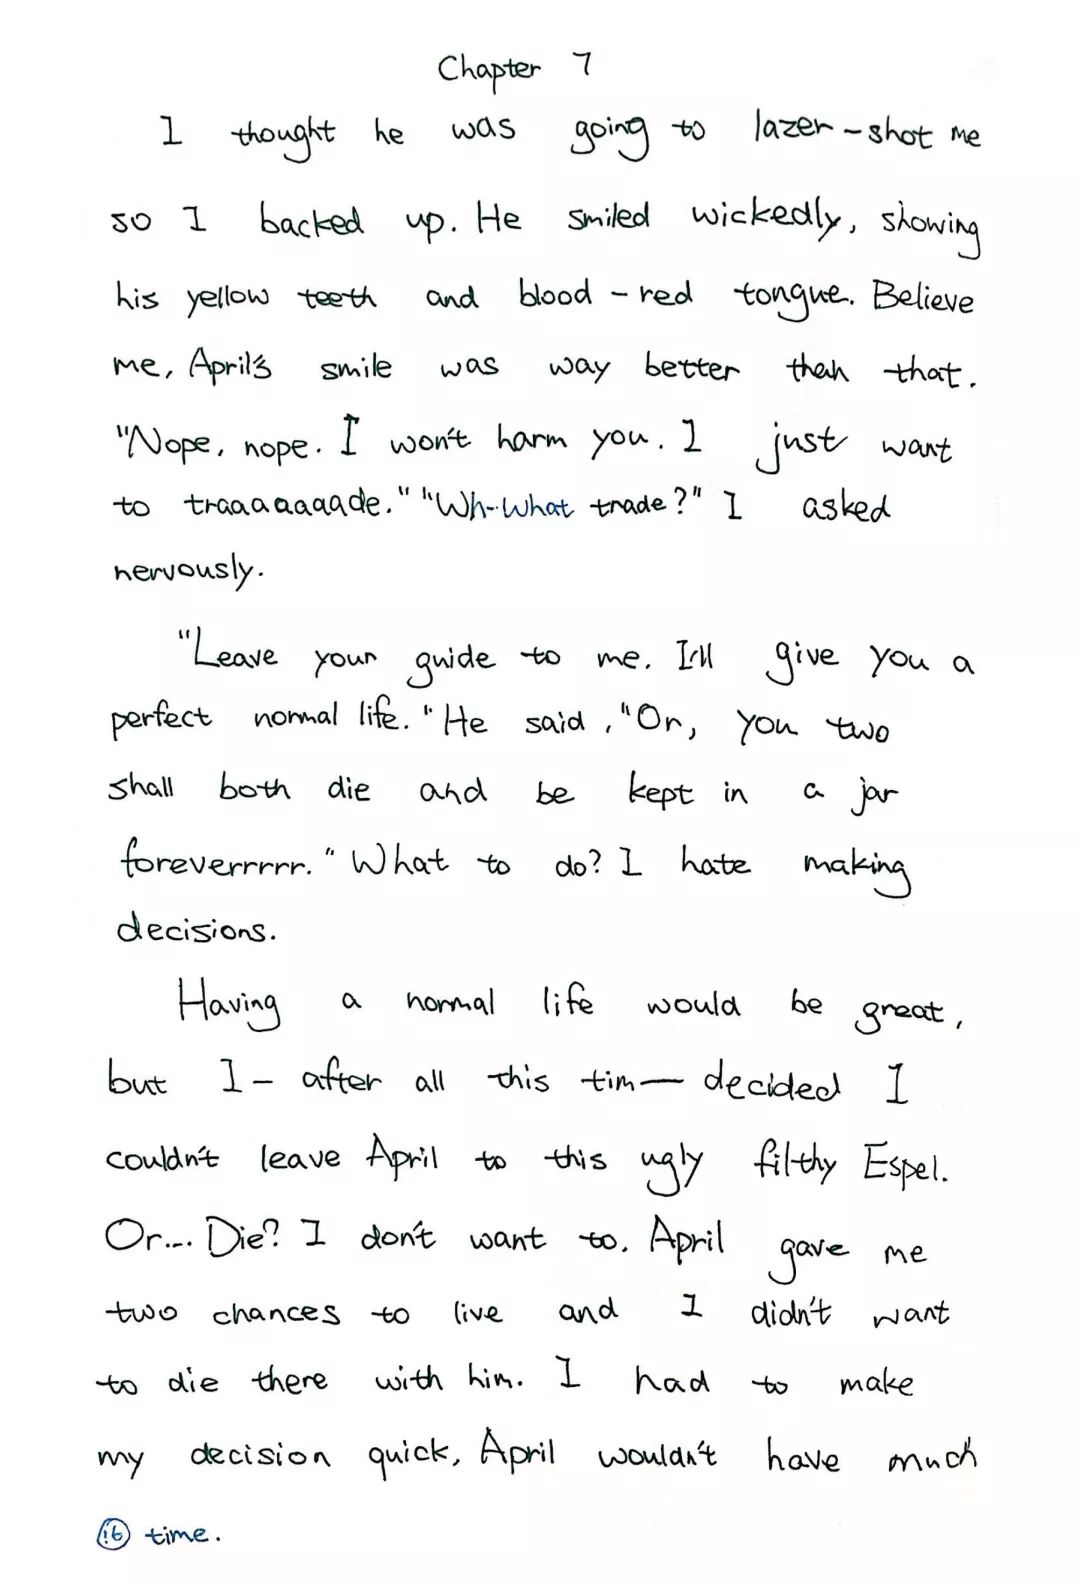 Chapter 7
I thought he was going to lazer-shot me
so I backed up. He smiled wickedly, showing
his yellow teeth and blood-red tongue. Believe
me, April's smile was way better than that.
"Nope, nope. I won't harm you. I just want
to traaaaaaaade." "Wh-What trade?" I asked
nervously.
"Leave your guide to me. I'll give you a
perfect normal life." He said, "Or, you two
shall both die and be kept in a jar
foreverrrrr." What to do? I hate making
decisions.
Having a normal life would be great,
but I - after all this tim— decided I
couldn't leave April to this ugly filthy Espel.
Or.... Die? I don't want to. April gave me
two chances to live and I didn't want
to die there with him. I had to make
my decision quick, April wouldn't have much
16 time.